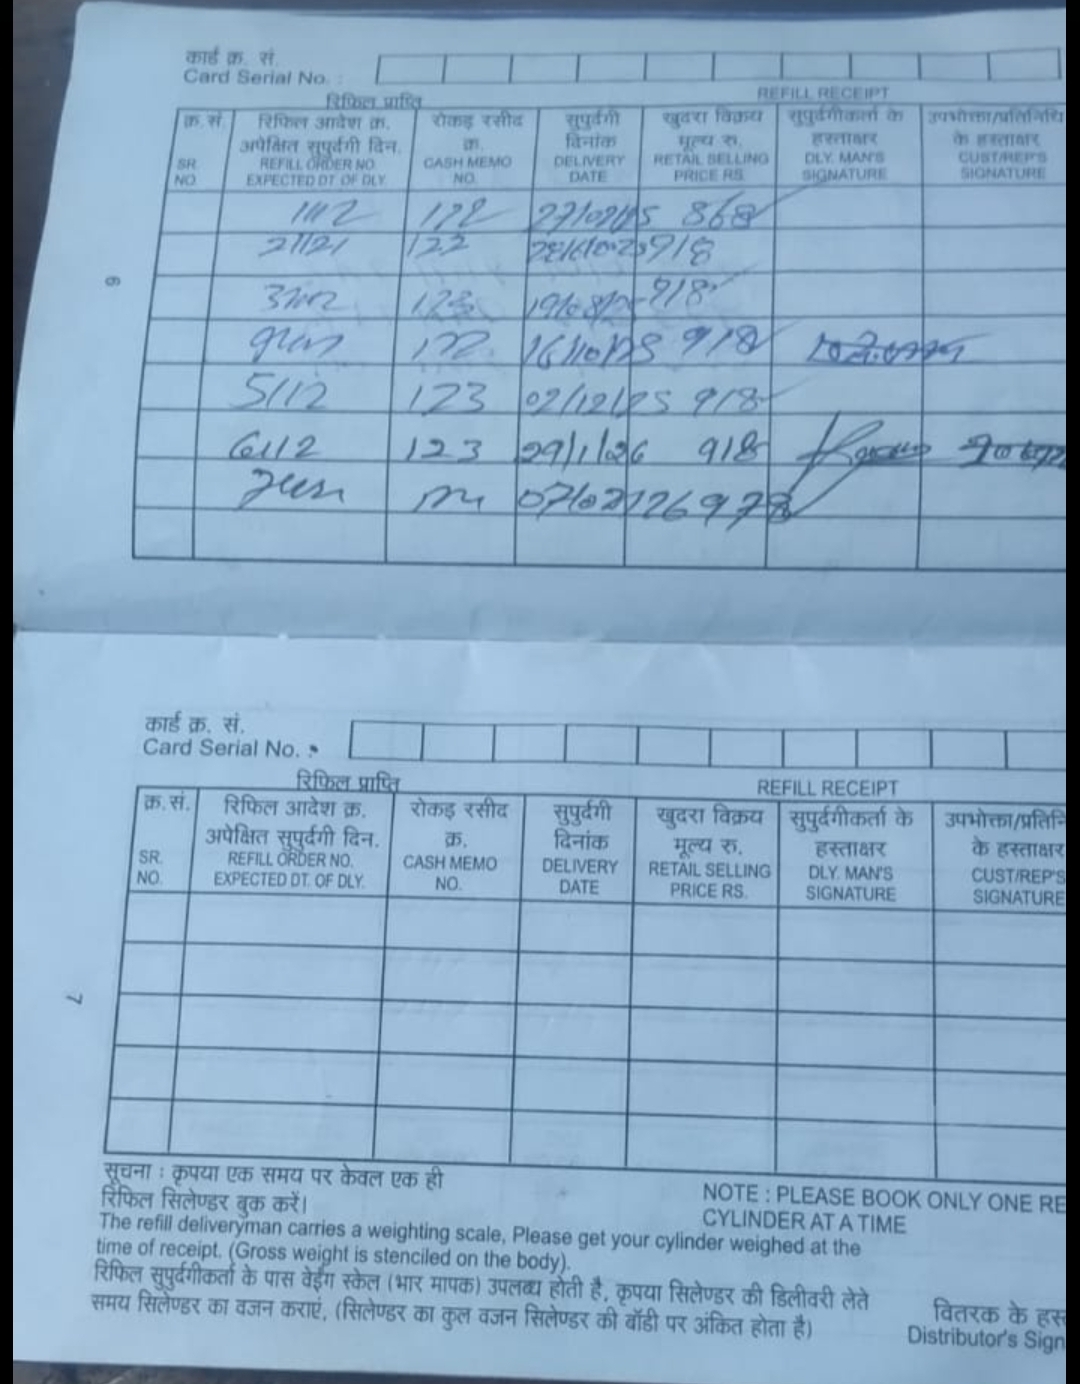 कार्ड क्र. सं.
Card Serial No. :
रिफिल प्राप्ति REFILL RECEIPT
क्र.सं. रिफिल आदेश क्र. रोकड़ रसीद सुपुर्दगी खुदरा विक्रय सुपुर्दगीकर्ता के उपभोक्ता/प्रतिनिधि
अपेक्षित सुपुर्दगी दिन. क्र. दिनांक मूल्य रु. हस्ताक्षर के हस्ताक्षर
SR. REFILL ORDER NO. CASH MEMO DELIVERY RETAIL SELLING DLY. MAN'S CUST/REP'S
NO. EXPECTED DT. OF DLY. NO. DATE PRICE RS. SIGNATURE SIGNATURE
868
122 918
123 918
6
16/10/25 918
5/12 123 02/12/25 918
6112 123 29/1/26 918
978
कार्ड क्र. सं.
Card Serial No. :
रिफिल प्राप्ति REFILL RECEIPT
क्र.सं. रिफिल आदेश क्र. रोकड़ रसीद सुपुर्दगी खुदरा विक्रय सुपुर्दगीकर्ता के उपभोक्ता/प्रतिनि
अपेक्षित सुपुर्दगी दिन. क्र. दिनांक मूल्य रु. हस्ताक्षर के हस्ताक्षर
SR. REFILL ORDER NO. CASH MEMO DELIVERY RETAIL SELLING DLY. MAN'S CUST/REP'S
NO. EXPECTED DT. OF DLY. NO. DATE PRICE RS. SIGNATURE SIGNATURE
7
सूचना : कृपया एक समय पर केवल एक ही
रिफिल सिलेण्डर बुक करें।
NOTE : PLEASE BOOK ONLY ONE RE
CYLINDER AT A TIME
The refill deliveryman carries a weighting scale, Please get your cylinder weighed at the
time of receipt. (Gross weight is stenciled on the body).
रिफिल सुपुर्दगीकर्ता के पास वेईंग स्केल (भार मापक) उपलब्ध होती है, कृपया सिलेण्डर की डिलीवरी लेते
समय सिलेण्डर का वजन कराएं, (सिलेण्डर का कुल वजन सिलेण्डर की बॉडी पर अंकित होता है)
वितरक के हस्
Distributor's Sign